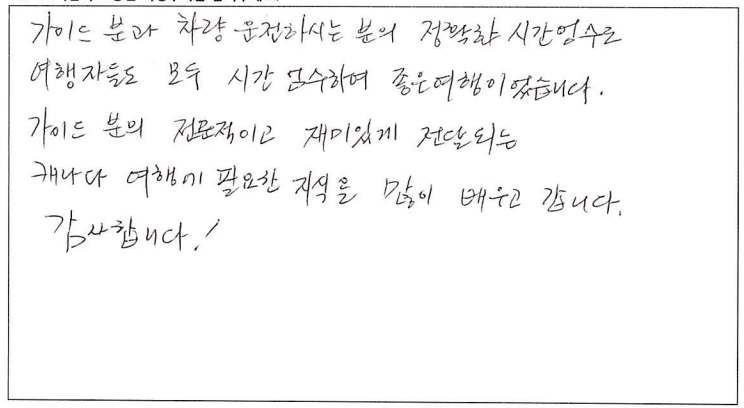 가이드 분과 차량 운전하시는 분의 정확한 시간엄수로
여행자들도 모두 시간 엄수하여 좋은여행이었습니다.
가이드 분의 전문적이고 재미있게 전달되는
캐나다 여행에 필요한 지식을 많이 배우고 갑니다.
감사합니다!